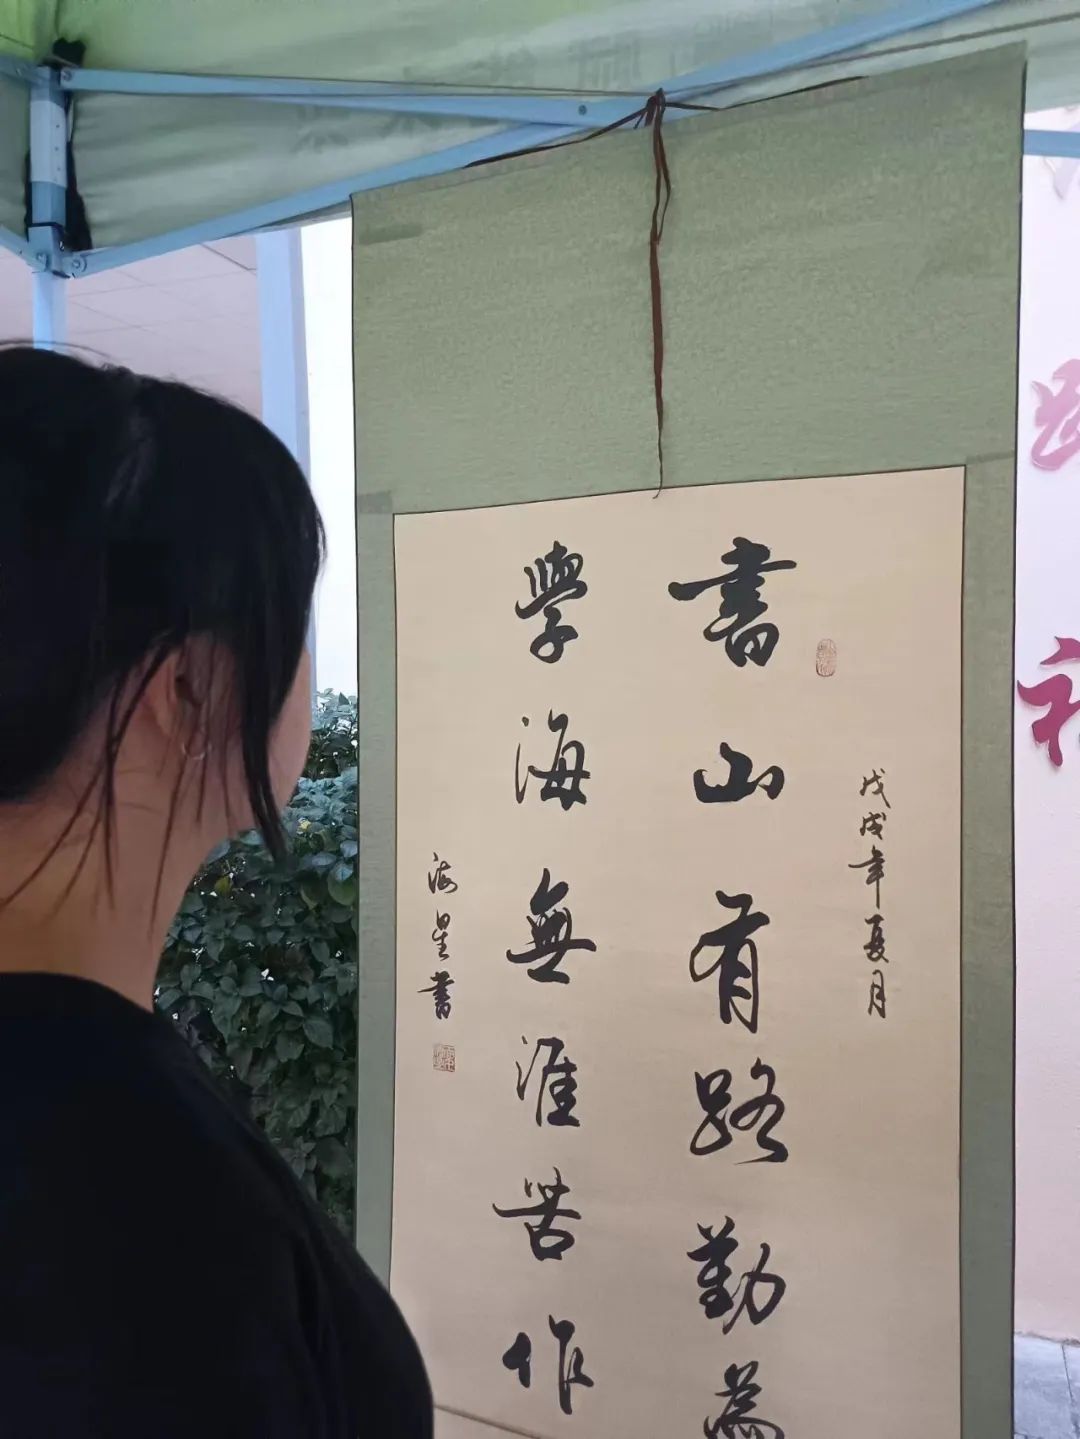 戊戌年夏月
書山有路勤為
學海無涯苦作
海星書